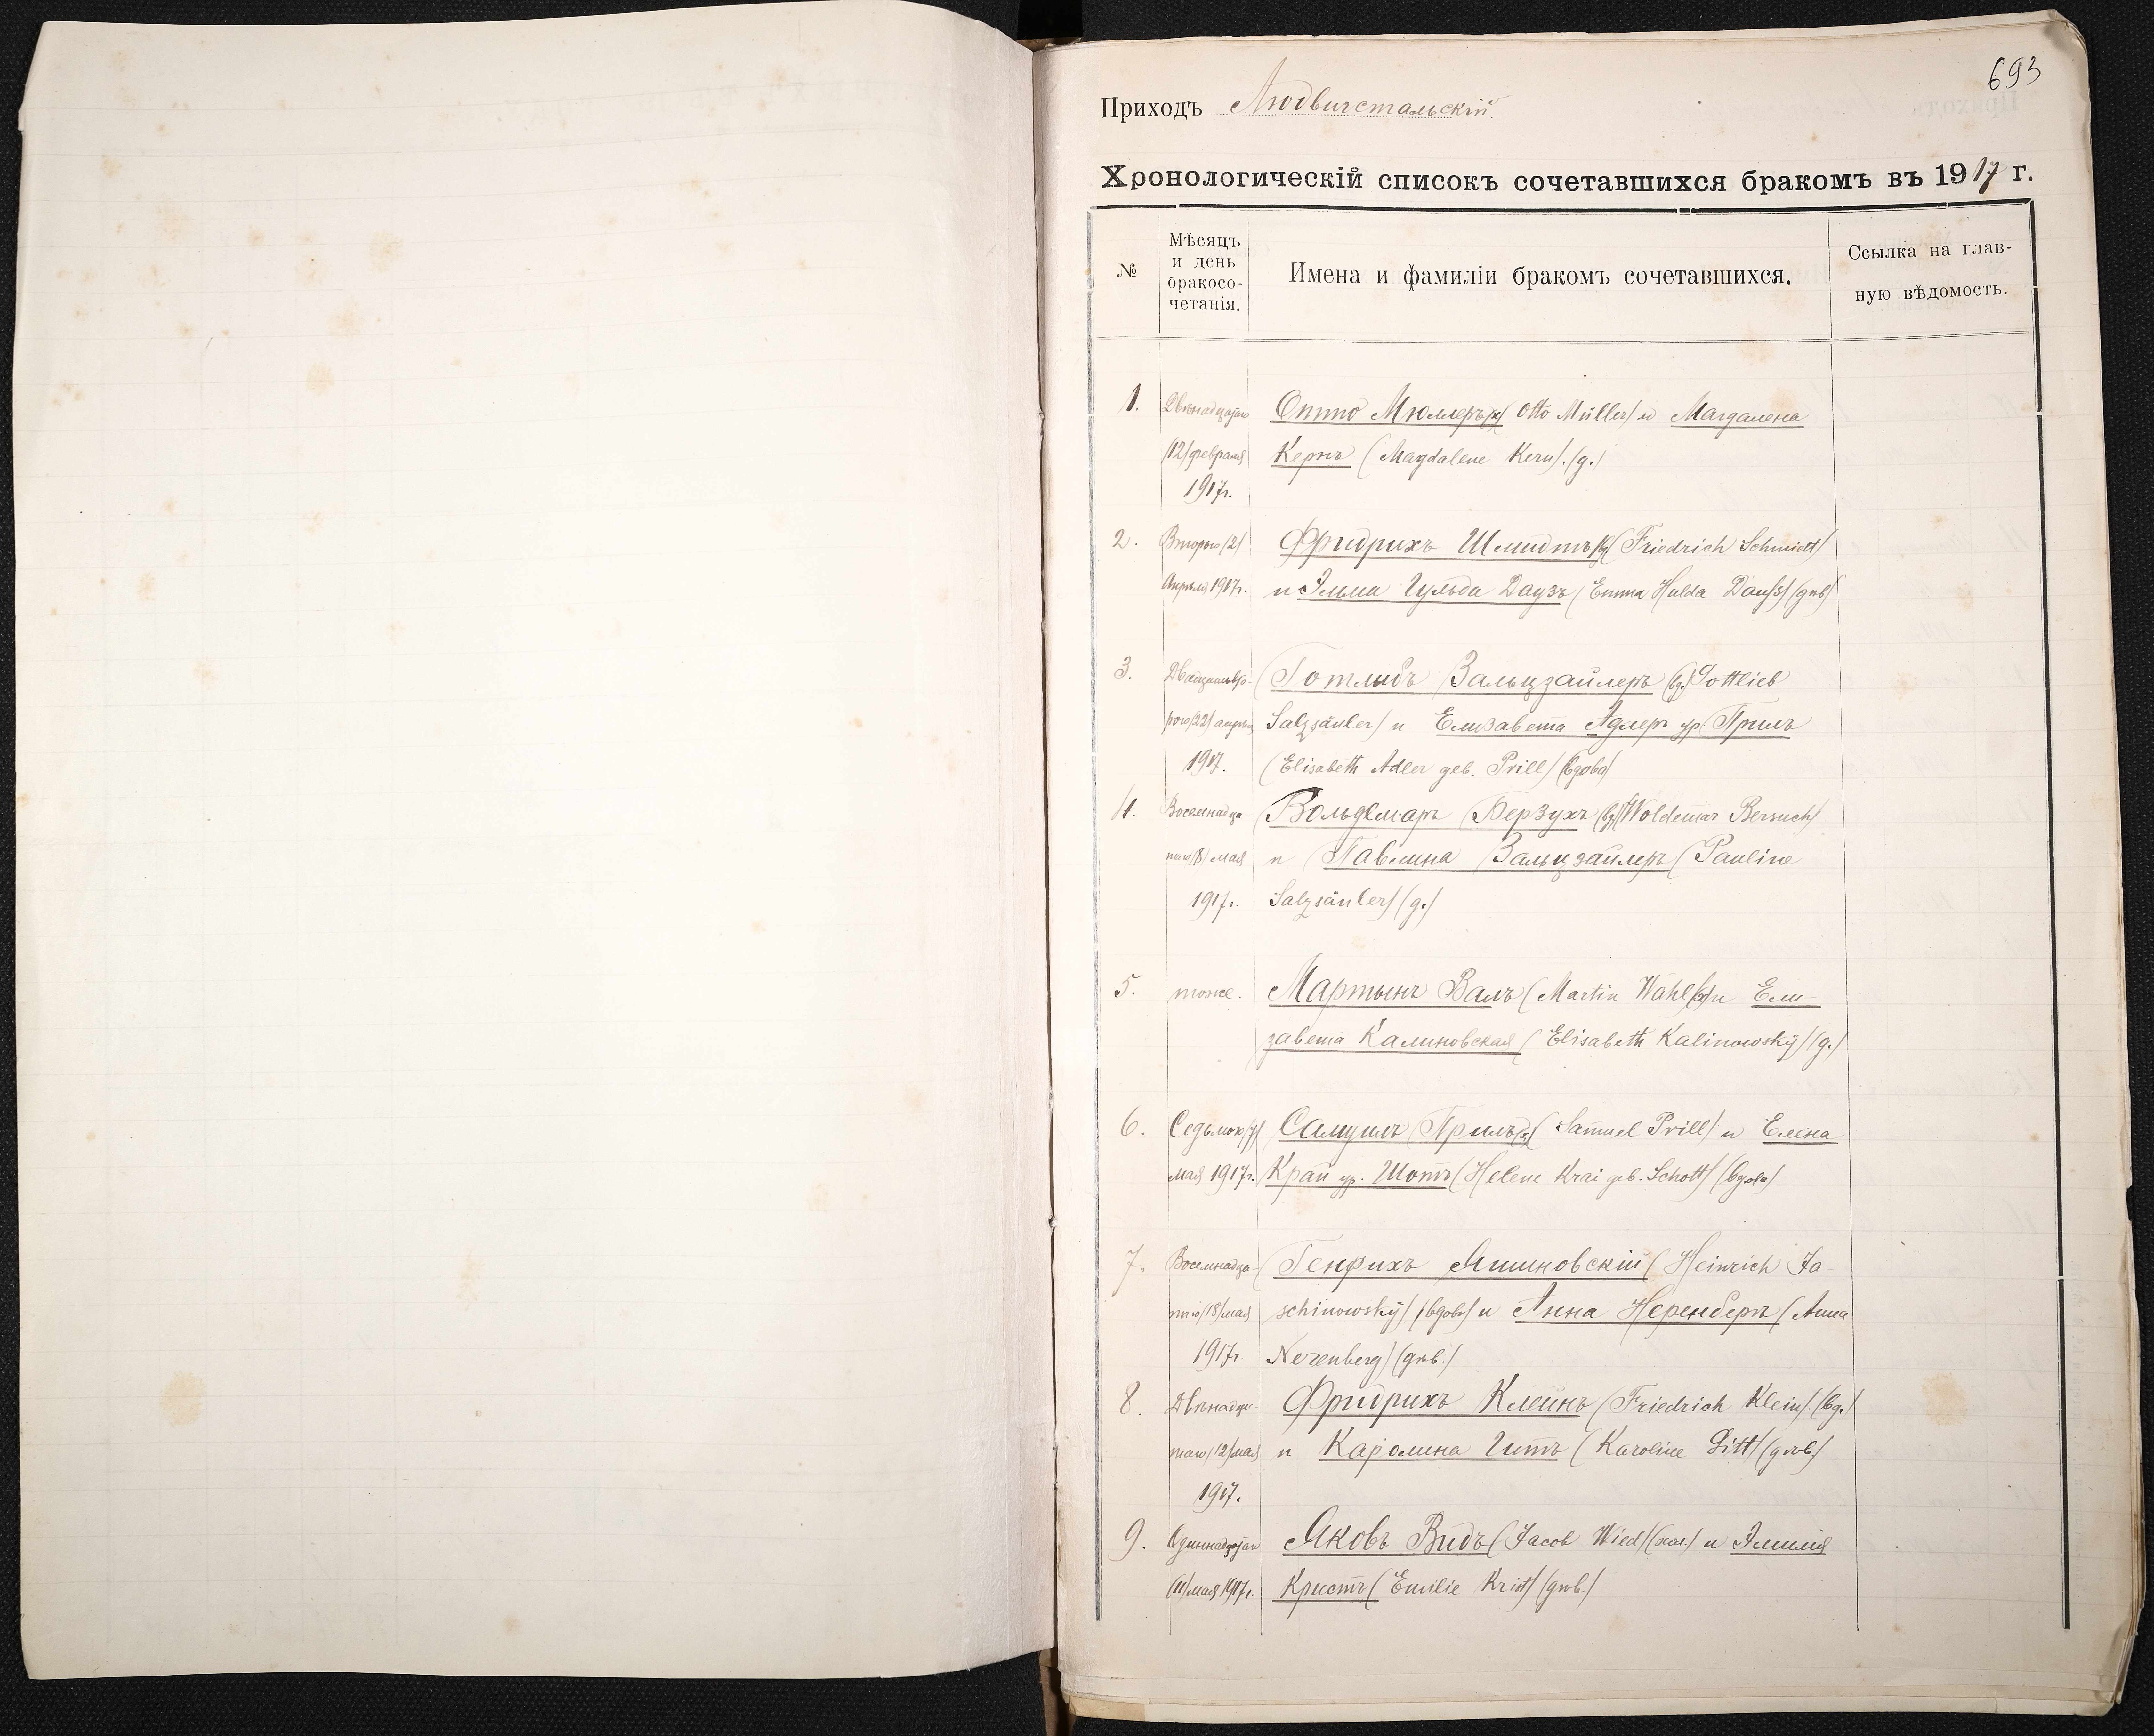 693
Приходъ Людвигстальскій.
Хронологическій списокъ сочетавшихся бракомъ въ 1917 г.
№
Мѣсяцъ
и день
бракосо-
четанія.
Имена и фамиліи бракомъ сочетавшихся.
Ссылка на глав-
ную вѣдомость.
1. Отто Мюллеръ (Otto Müller) и Магдалена
/12/ февраля Кернъ (Magdalene Kern). (д.)
1917г.
2. Второго /2/ Фридрихъ Шмидтъ (Friedrich Schmidt)
Апрѣля 1917г. и Эмма Гульда Даузъ (Emma Hulda Dauß) (дѣв)
3. Готлибъ Зальцзайлеръ (вд.) Gottlieb
рого /22/ апрѣля Salzsäuler) и Елизавета Адлеръ ур. Приль
1917. (Elisabeth Adler geb. Prill) (вдова)
4. Восемнадца- Вольдемаръ Берзухъ (Woldemar Bersuch)
мая и Павлина Зальцзайлеръ (Pauline
1917г. Salzsäuler) (д.)
5. тоже. Мартынъ Валъ (Martin Wahl) и Ели-
завета Калиновская (Elisabeth Kalinowsky) (д.)
6. Седьмого /7/ Самуилъ Приль (Samuel Prill) и Елена
мая 1917г. Край ур. Шотъ (Helene Krai geb. Schott) (вдова)
7. Восемнадца- Генрихъ Яшиновскій (Heinrich Ja-
таго /18/ мая schinowsky) и Анна Неренбергъ (Anna
1917г. Nerenberg) (дѣв.)
8. Двѣнадца- Фридрихъ Клейнъ (Friedrich Klein). (вд.)
таго /12/ мая и Каролина Гитъ (Karoline Gitt) (дѣв)
1917.
9. Яковъ Видъ (Jacob Wied) (хол.) и Эмилія
/11/ мая 1917г. Кристъ (Emilie Krist) (дѣв.)